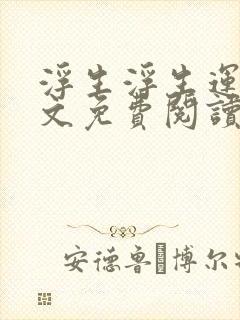 浮生浮生運
文免費閱讀
安德鲁 博尔